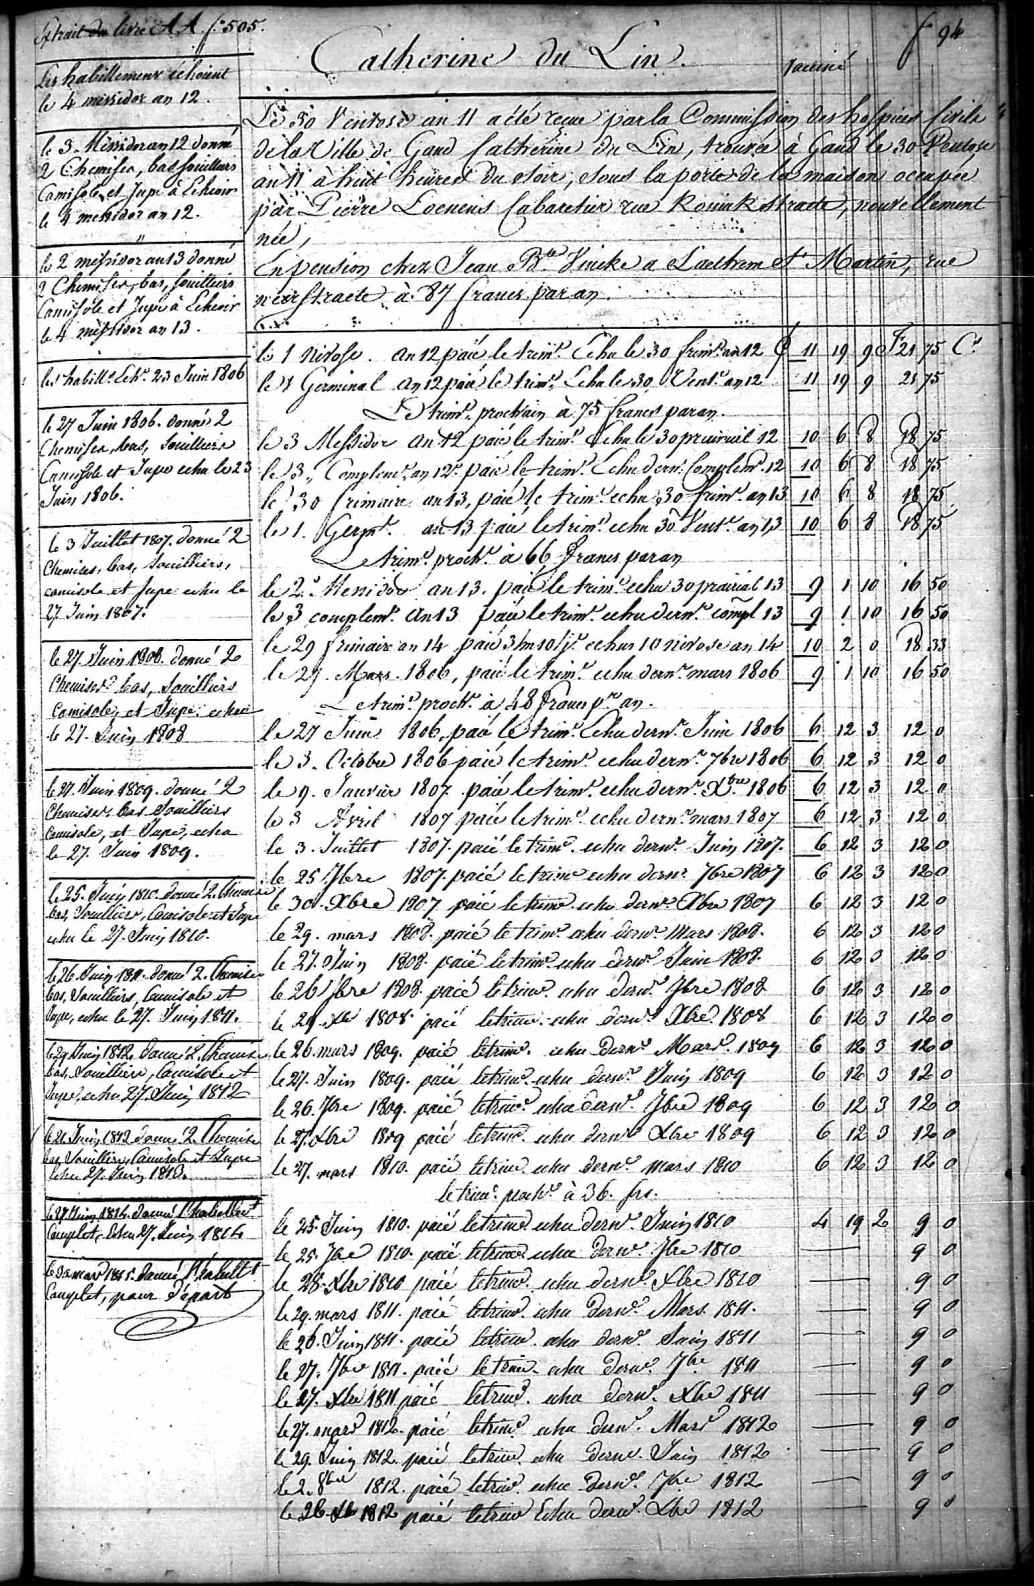 Extrait du livre AA f° 505.
f 94
Catherine du Lin.
vacciné
Les habillemens échoient
le 4 messidor an 12.
le 3. Messidor an 12 donné
2 Chemises, bas, souilliers
Camisole, et Jupe à Echoir
le 4 messidor an 12.
le 2 messidor an 13 donné
2 Chemises, bas, souilliers
Camisole et Jupe à Echoir
le 4 messidor an 13.
les habill.s Ech.t 23 Juin 1806
le 27 Juin 1806. donné 2
Chemises, bas, Souilliers
Camisole et Jupe echu le 23
Juin 1806.
le 3 Juillet 1807. donné 2
Chemises, bas, Souilliers,
camisole et Jupe echu le
27 Juin 1807.
le 27. Juin 1808. donné 2
Chemises bas, Souilliers
Camisole, et Jupe. echue
le 27. Juin 1808
le 27. Juin 1809. donné 2
Chemises. bas Souilliers
Camisole, et Jupe, echu
le 27. Juin 1809.
le 25. Juin 1810. donné 2. Chemise
bas, Souilliers, Camisole et Jupe
echu le 27. Juin 1810.
le 26 Juin 1811. donné 2. Chemise
bas, Souilliers, Camisole et
Jupe, echu le 27. Juin 1811.
le 29 Juin 1812. donné 2. Chemise
bas, Souilliers, Camisole et
Jupe, echu 27. Juin 1812
le 21 Juin 1813 donné 2 Chemise
bas, Souilliers, Camisole et Jupe
echu 27. Juin 1813.
le 27 Juin 1814. donné l'habillem.t
Complet, Echu 27. Juin 1814
le mars 1815. donné l'habillt
Complet, pour Départ
Le 30 Ventose an 11 a été reçue par la Commission des hospices Civils
de la Ville de Gand Catherine du Lin, trouvée à Gand le 30 Ventose
an 11 à huit heures du soir, sous la porte de la maison occupée
par Pierre Loenens Cabaretier rue Koninkstraete, nouvellement
née,
En pension chez Jean B.te Vincke a Laethem St Martin, rue
neerstraete à 87 francs par an.
le 1 Nivose. an 12 paié le trim.e Echu le 30 frim.e an 12 11 19 9 21 75 C.s
le 1 Germinal an 12 paié le trim.e Echu le 30 Vent.e an 12 11 19 9 21 75
Le trim.e prochain à 75 francs par an.
le 3 Messidor an 12 paié le trim.e Echu le 30 prairial 12 10 6 8 18 75
le 3. Complem.e an 12.e paié le trim.e Echu dern.r Complem.e 12 10 6 8 18 75
le 30 frimaire an 13, paié le trim.e echu 30 frim.e an 13 10 6 8 18 75
le 1. Germ.l an 13 paié le trim.e echu 30 Vent.e an 13 10 6 8 18 75
Le trim.e proch.n à 66 francs par an
le 2.e Messidor an 13. paié le trim.e echu 30 prairial 13 9 1 10 16 50
le 3 complem.e an 13 paié le trim.e echu dern.r compl 13 9 1 10 16 50
le 29 frimaire an 14 paié 3 m 10 j.s echus 10 nivose an 14 10 2 0 18 33
le 29. Mars. 1806, paié le trim.e echu dern.r mars 1806 9 1 10 16 50
Le trim.e proch.n à 48 francs p.r an.
le 27 Juin 1806, paié le trim.e Echu dern.r Juin 1806 6 12 3 12 0
le 3. Octobre 1806 paié le trim.e echu dern.r 7bre 1806 6 12 3 12 0
le 9. Janvier 1807 paié le trim.e echu dern.r Xbre 1806 6 12 3 12 0
le 3 Avril 1807 paié le trim.e echu dern.r mars 1807 6 12 3 12 0
le 3. Juillet 1807. paié le trim.e echu dern.r Juin 1807. 6 12 3 12 0
le 25 7bre 1807. paié le trim.e echu dern.r 7bre 1807 6 12 3 12 0
le 30. Xbre 1807 paié le trim.e echu dern.r Xbre 1807 6 12 3 12 0
le 29. mars 1808. paié le trim.e echu dern.r Mars 1808. 6 12 3 12 0
le 27. Juin 1808. paié le trim.e echu dern.r Juin 1808. 6 12 3 12 0
le 26 7bre 1808. paié le trim.e echu dern.r 7bre 1808 6 12 3 12 0
le 29 Xbre 1808. paié le trim.e echu dern.r Xbre 1808 6 12 3 12 0
le 26. mars 1809. paié le trim.e echu dern.r Mars. 1809 6 12 3 12 0
le 27. Juin 1809. paié le trim.e echu dern.r Juin 1809 6 12 3 12 0
le 26. 7bre 1809. paié le trim.e echu dern.r 7bre 1809 6 12 3 12 0
le 27. Xbre 1809 paié le trim.e echu dern.r Xbre 1809 6 12 3 12 0
le 27. mars 1810. paié le trim.e echu dern.r mars 1810 6 12 3 12 0
le trim.e proch.n à 36. frs.
le 25. Juin 1810. paié le trim.e echu dern.r Juin 1810 4 19 2 9 0
le 25. 7bre 1810. paié le trim.e echu dern.r 7bre 1810 9 0
le 28. Xbre 1810 paié le trim.e echu dern.r Xbre 1810 9 0
le 29. mars 1811. paié le trim.e echu dern.r Mars. 1811. 9 0
le 26. Juin 1811. paié le trim.e echu dern.r Juin 1811 9 0
le 27. 7bre 1811. paié le trim.e echu dern.r 7bre 1811 9 0
le 27. Xbre 1811 paié le trim.e echu dern.r Xbre 1811 9 0
le 27. mars 1812. paié le trim.e echu dern.r Mars 1812 9 0
le 29. Juin 1812. paié le trim.e echu dern.r Juin 1812 9 0
le 2. 8bre 1812. paié le trim.e echu dern.r 7bre 1812 9 0
le 26 Xb 1812 paié le trim.e Echu dern.r Xbre 1812 9 0